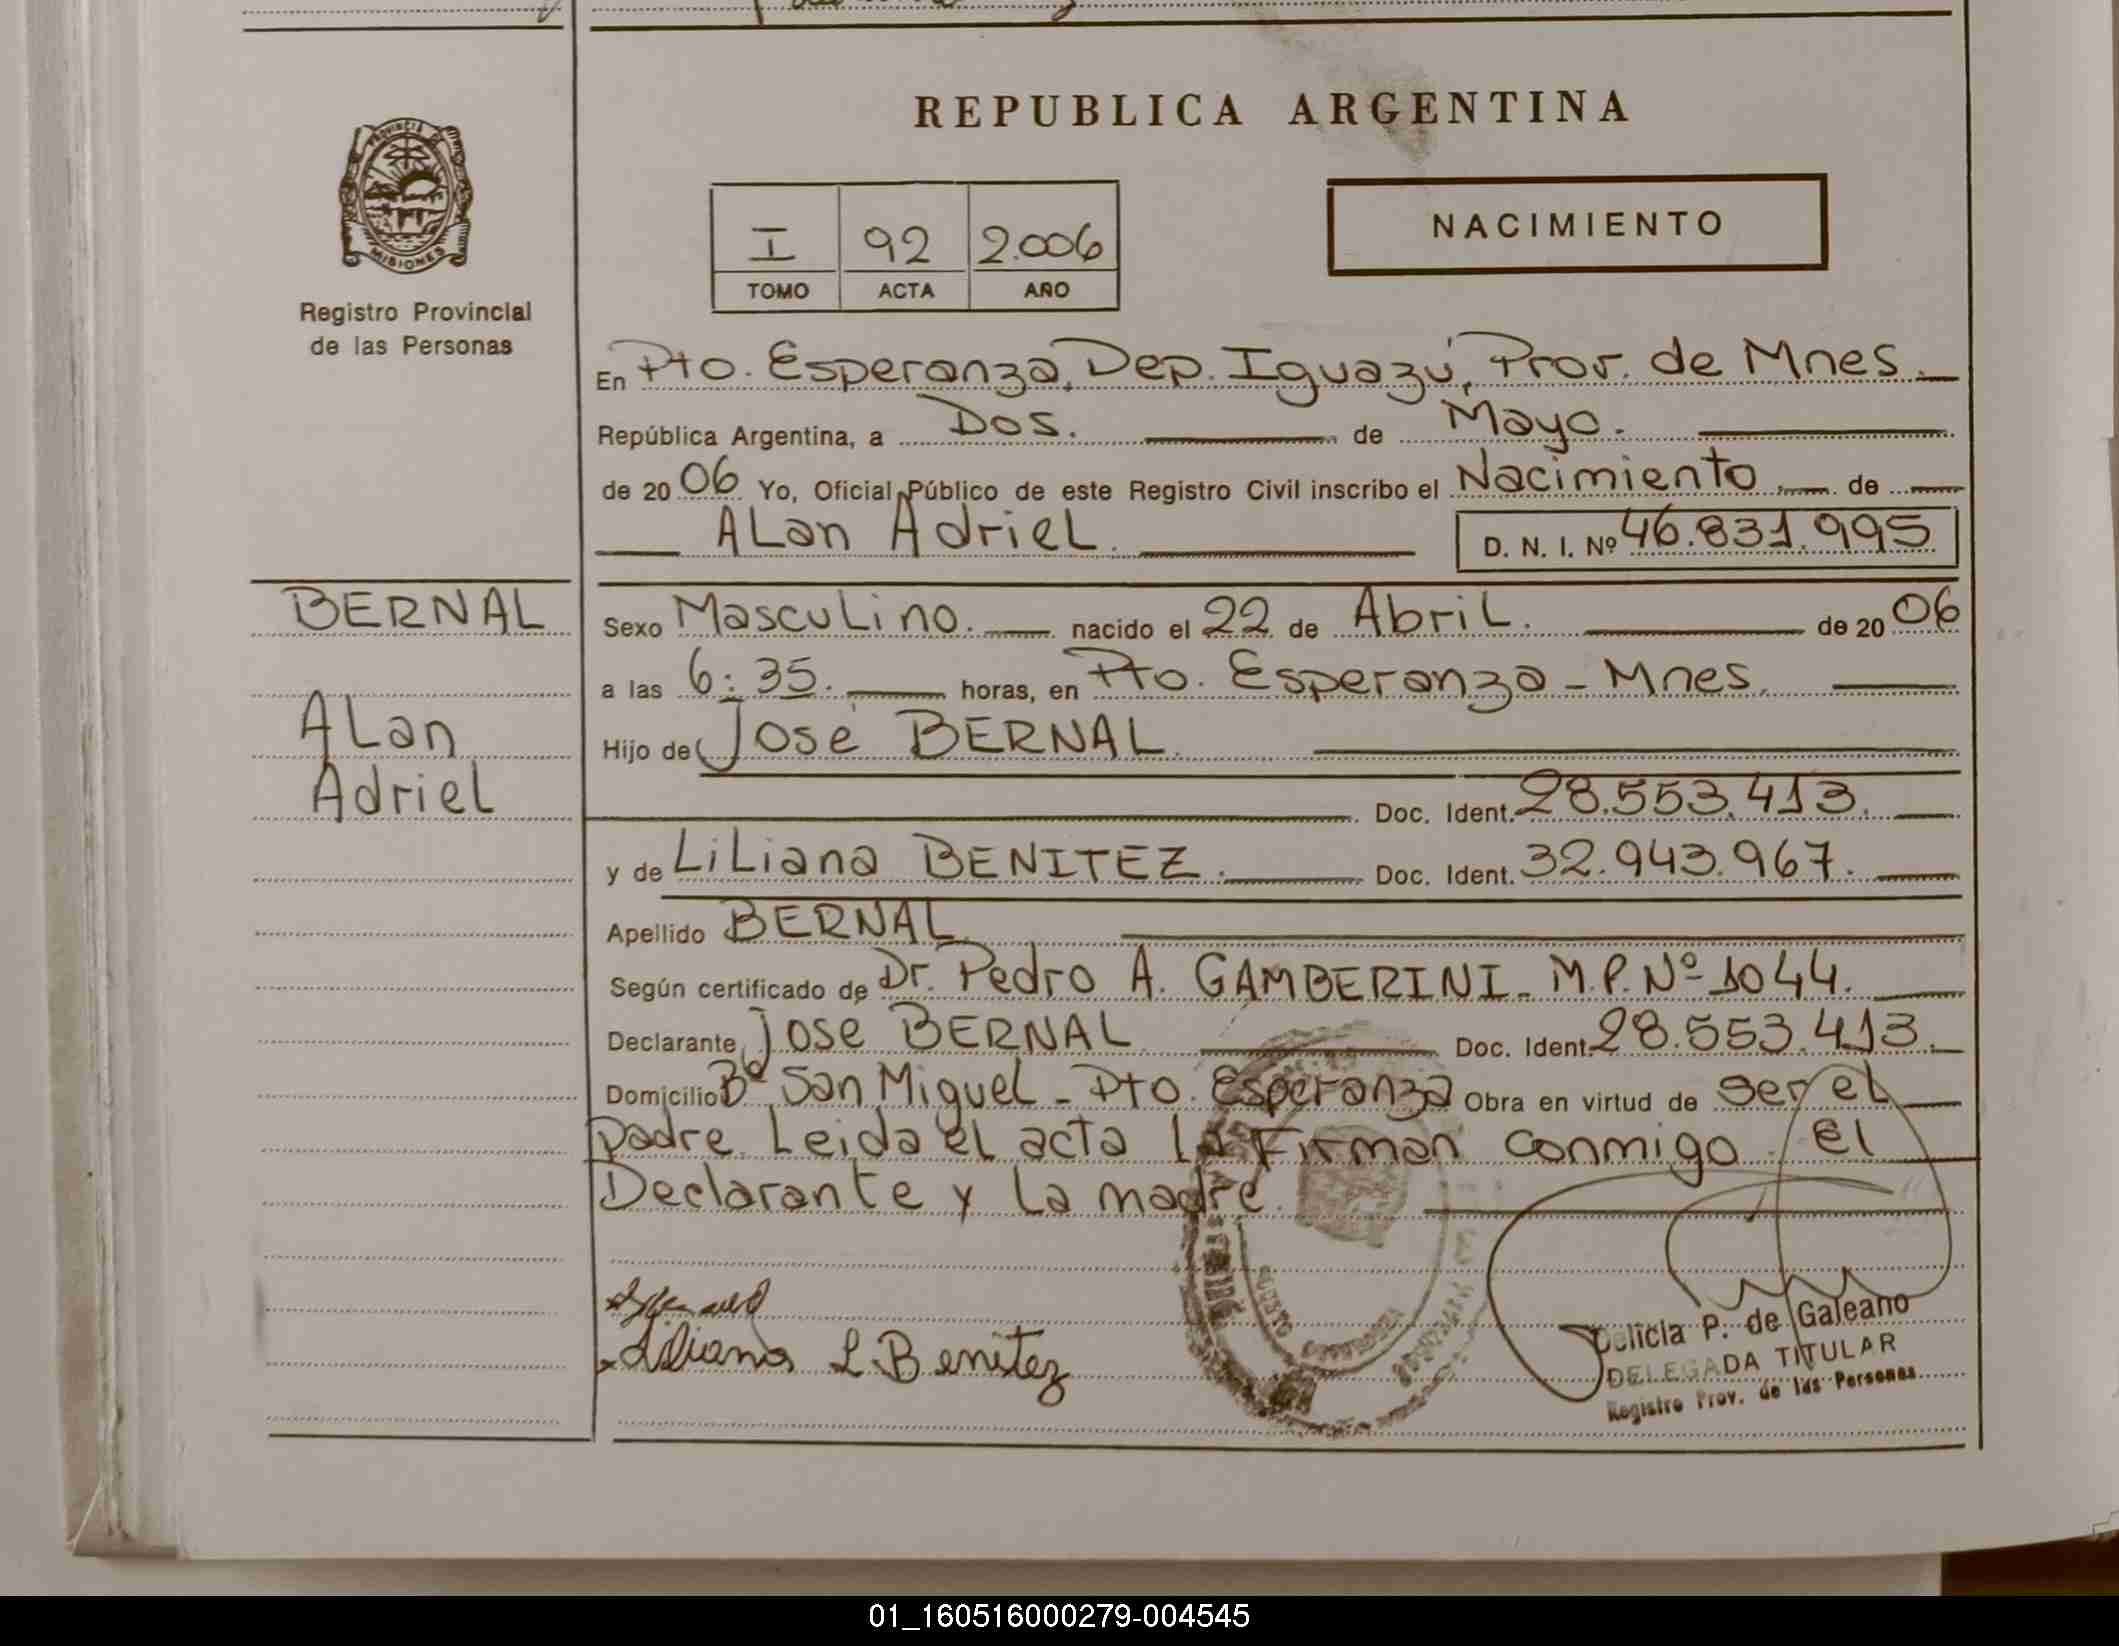 REPUBLICA ARGENTINA
PROVINCIA DE
MISIONES
Registro Provincial
de las Personas
I 92 2.006
TOMO ACTA AÑO
NACIMIENTO
En Pto. Esperanza, Dep. Iguazú, Prov. de Mnes.
República Argentina, a Dos. de Mayo.
de 2006 Yo, Oficial Público de este Registro Civil inscribo el Nacimiento de
ALan AdrieL. D. N. I. Nº 46.831.995
BERNAL
ALan
Adriel
Sexo MascuLino. nacido el 22 de AbriL. de 2006
a las 6:35. horas, en Pto. Esperanza - Mnes.
Hijo de José BERNAL.
Doc. Ident. 28.553.413.
y de LiLiana BENITEZ. Doc. Ident. 32.943.967.
Apellido BERNAL
Según certificado de Dr. Pedro A. GAMBERINI. M.P. Nº 1044.
Declarante Jose BERNAL Doc. Ident. 28.553.413.
Domicilio Bº San MigueL - Pto. Esperanza Obra en virtud de ser eL
padre. Leida eL acta La Firman conmigo el
Declarante y La madre.
Liliana L Benitez
Delicia P. de Galeano
DELEGADA TITULAR
Registro Prov. de las Personas
01_160516000279-004545